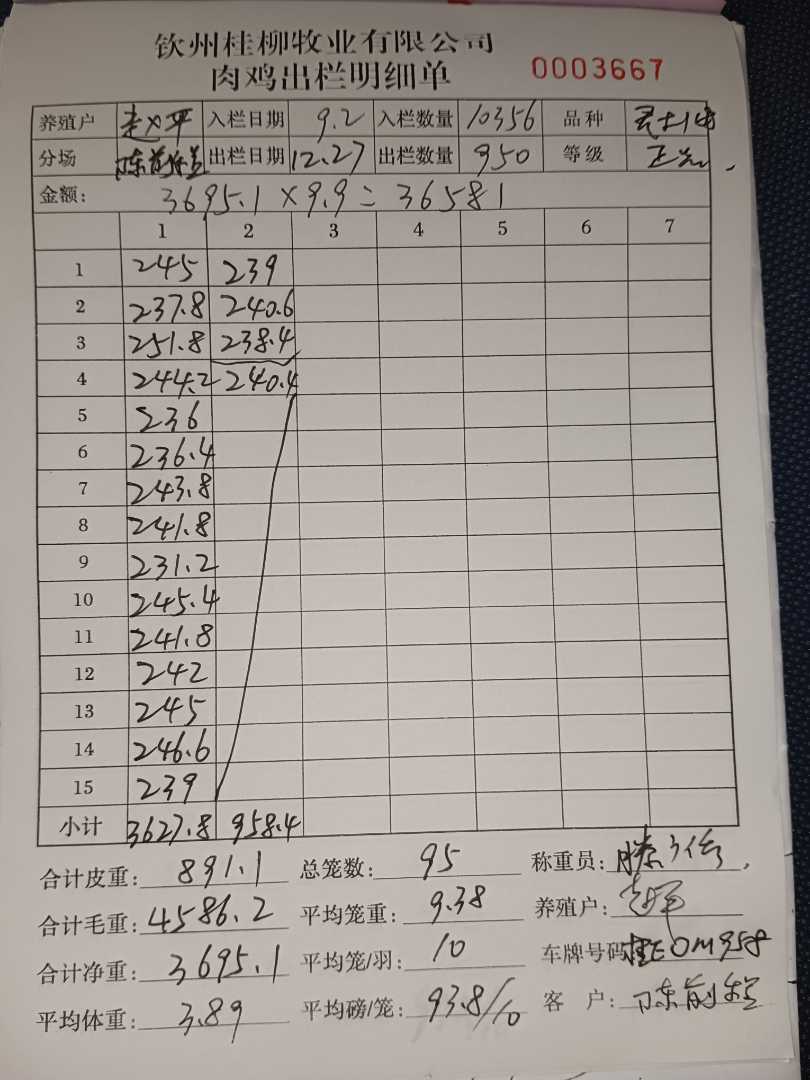 钦州桂柳牧业有限公司
肉鸡出栏明细单 0003667
养殖户 赵 平 入栏日期 9.2 入栏数量 10356 品种
分场 陈前 出栏日期 12.27 出栏数量 950 等级 正
金额: 3695.1×9.9=36581
1 2 3 4 5 6 7
1 245 239
2 237.8 240.6
3 251.8 238.4
4 244.2 240.4
5 236
6 236.4
7 243.8
8 241.8
9 231.2
10 245.4
11 241.8
12 242
13 245
14 246.6
15 239
小计 3627.8 958.4
合计皮重: 891.1 总笼数: 95 称重员:
合计毛重: 4586.2 平均笼重: 9.38 养殖户:
合计净重: 3695.1 平均笼/羽: 10 车牌号码 桂E0M958
平均体重: 3.89 平均磅/笼: 93.8/10 客 户: 陈前